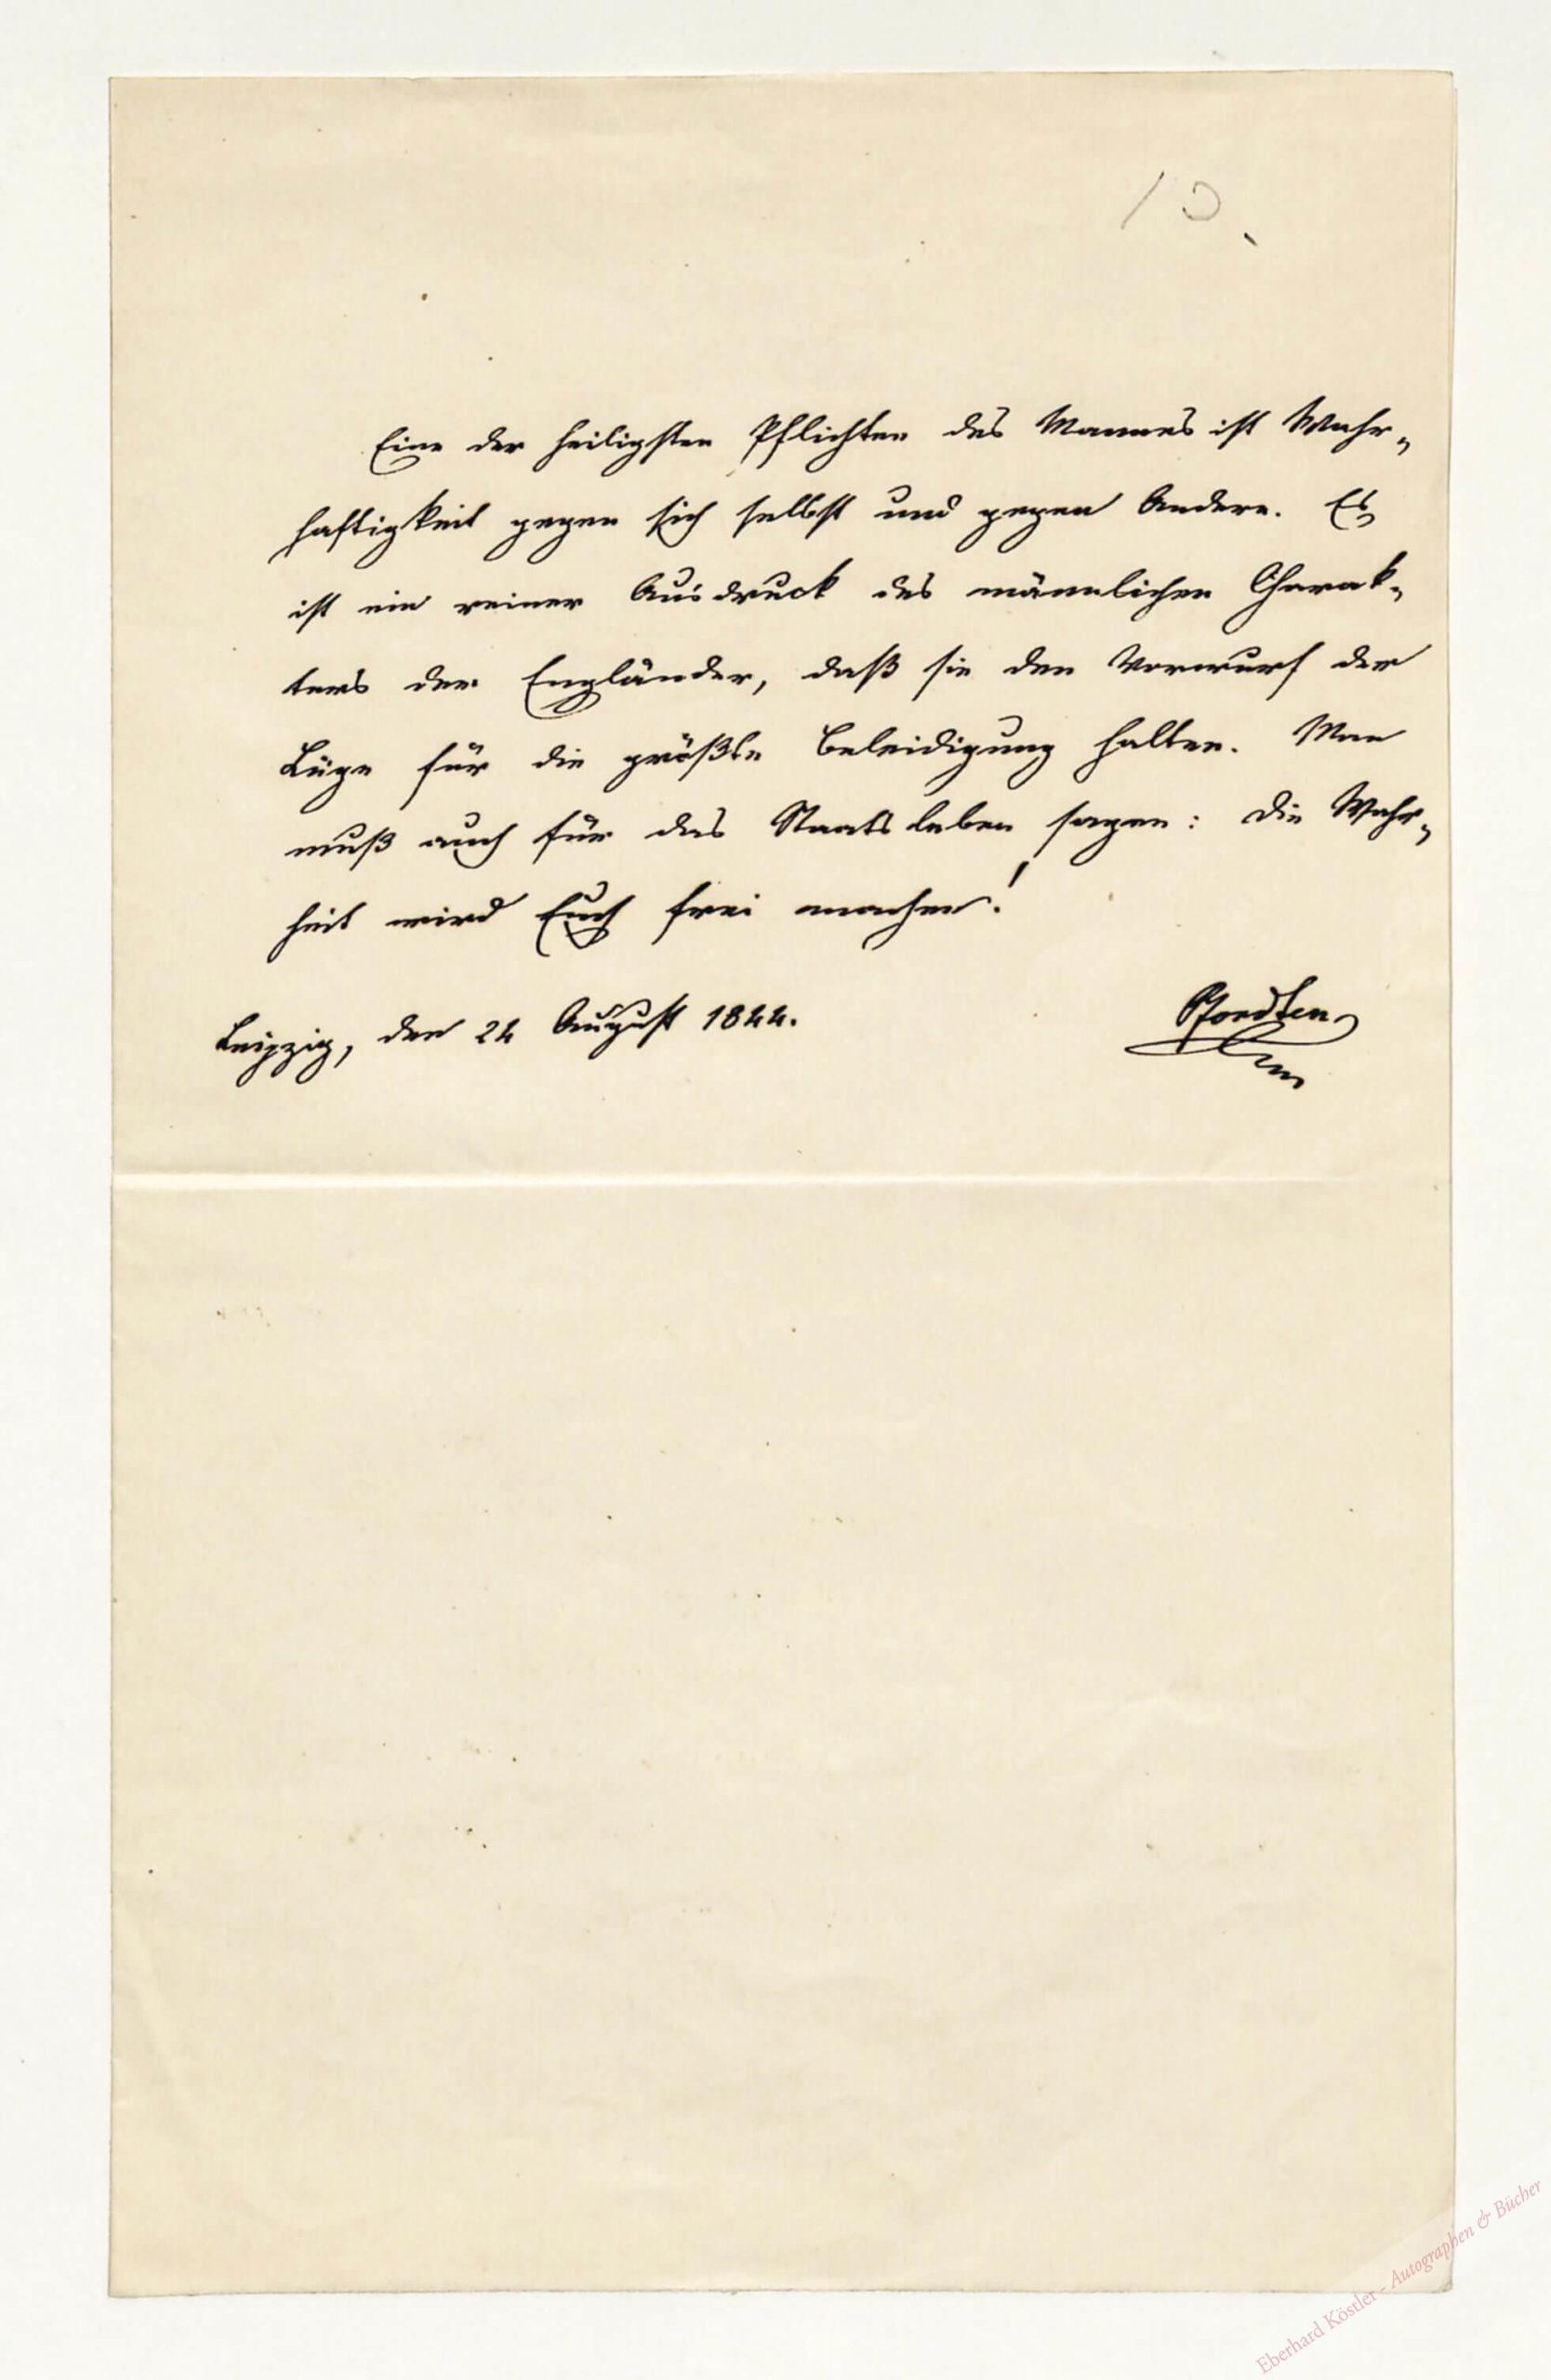 10.
Eine der heiligsten Pflichten des Mannes ist Wahr-
haftigkeit gegen sich selbst und gegen Andere. Es
ist ein reiner Ausdruck des männlichen Charak-
ters der Engländer, daß sie den Vorwurf der
Lüge für die größte Beleidigung halten. Man
muß auch für das Staatsleben sagen: die Wahr-
heit wird Euch frei machen!
Leipzig, den 24 August 1844.
Pfordten
Eberhard Köstler - Autographen & Bücher